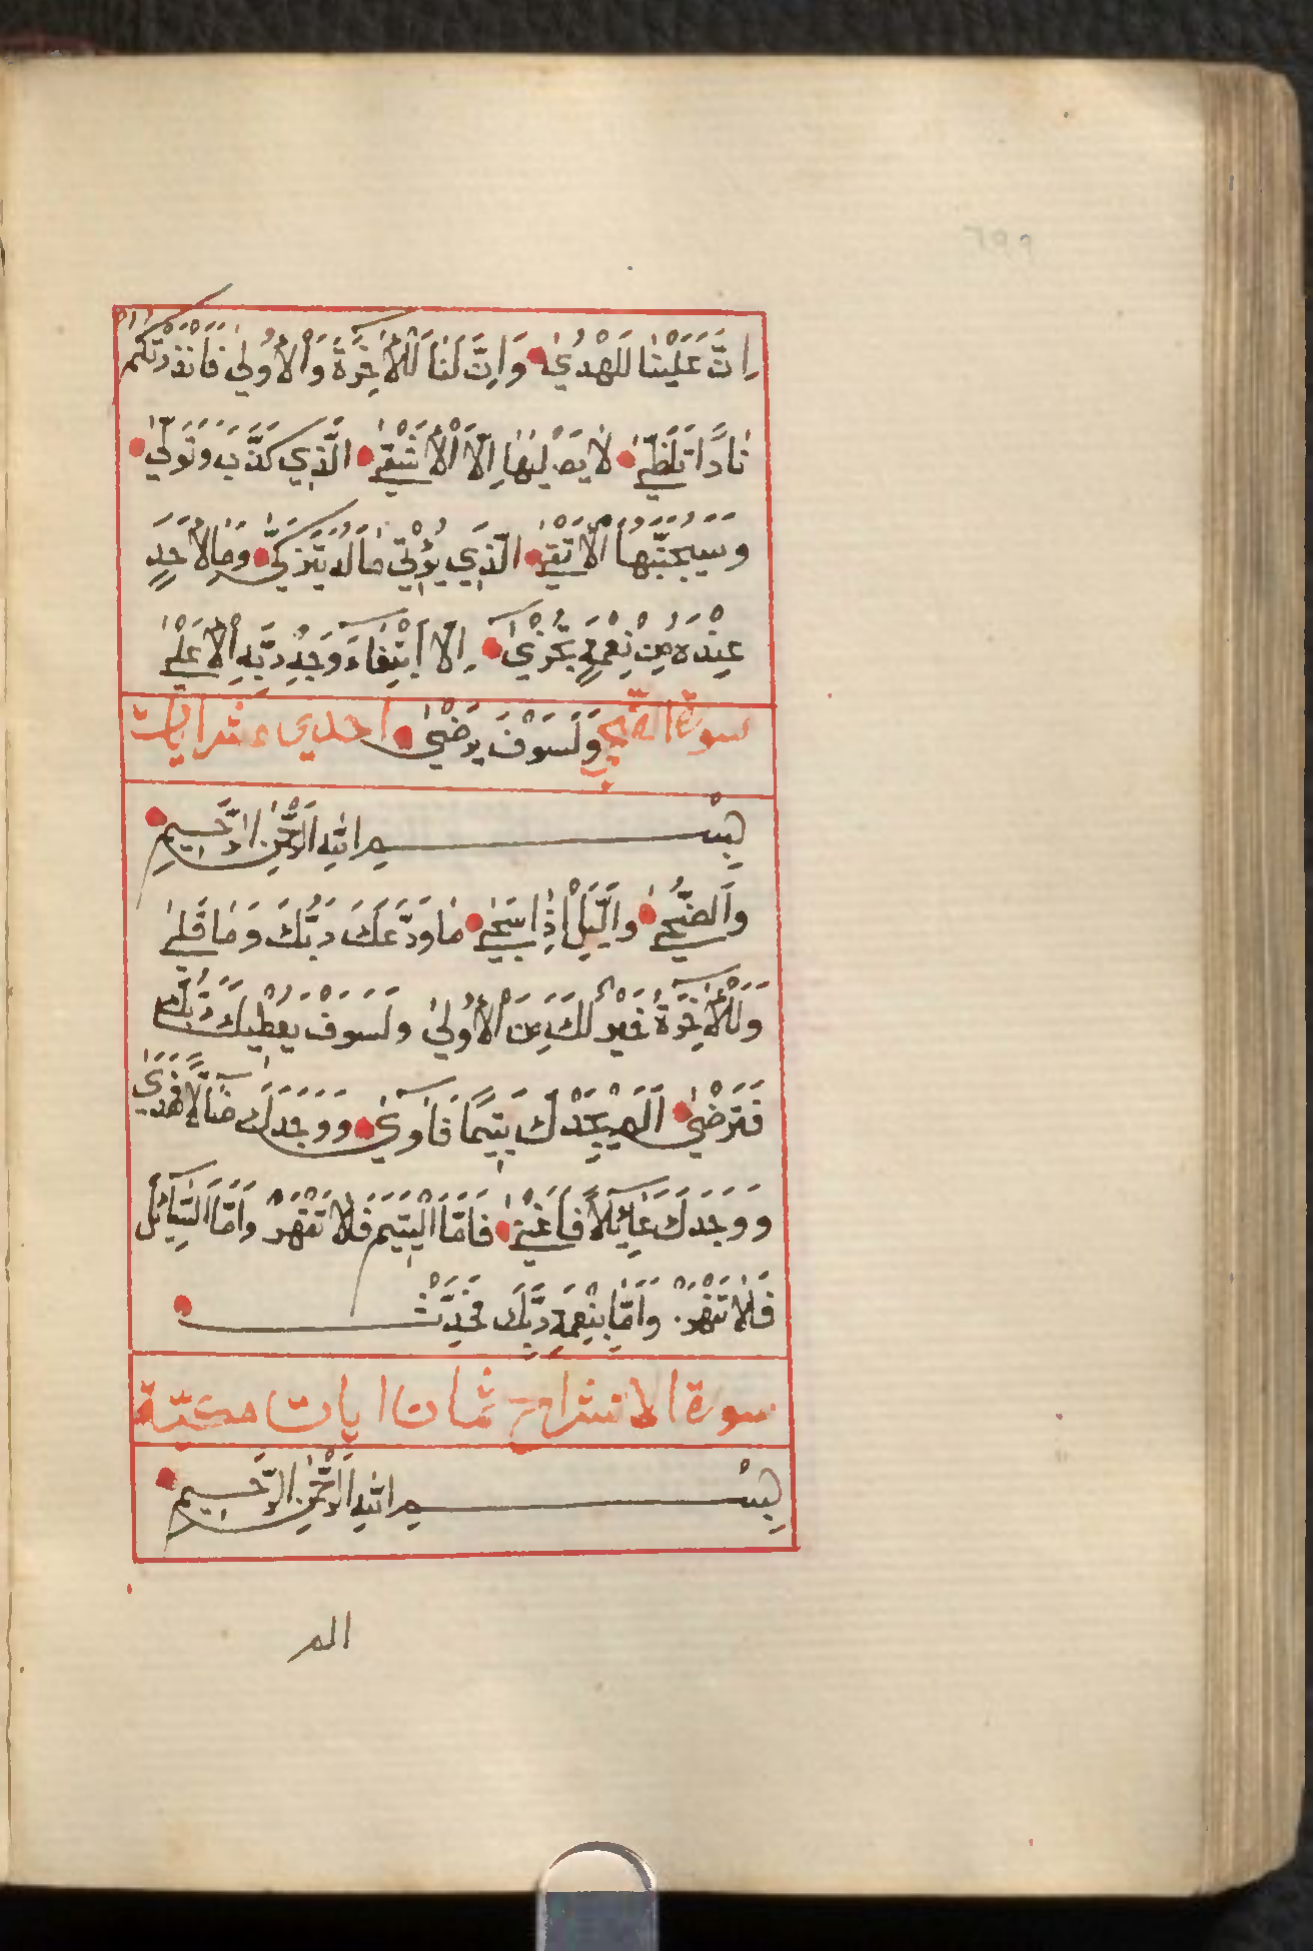 اِنَّ عَلَيْنَا لَلْهُدٰى وَاِنَّ لَنَا لَلْاٰخِرَةَ وَالْاُولٰى فَاَنْذَرْتُكُمْ
نَارًا تَلَظّٰى لَا يَصْلٰيهَا اِلَّا الْاَشْقٰى الَّذِي كَذَّبَ وَتَوَلّٰى
وَسَيُجَنَّبُهَا الْاَتْقٰى الَّذِي يُؤْتِي مَالَهُ يَتَزَكّٰى وَمَا لِاَحَدٍ
عِنْدَهُ مِنْ نِعْمَةٍ تُجْزٰى اِلَّا ابْتِغَاءَ وَجْهِ رَبِّهِ الْاَعْلٰى
سورة الضحى وَلَسَوْفَ يَرْضٰى احدى عشر ايات
بِسْمِ اللهِ الرَّحْمٰنِ الرَّحِيمِ
وَالضُّحٰى وَالَّيْلِ اِذَا سَجٰى مَا وَدَّعَكَ رَبُّكَ وَمَا قَلٰى
وَلَلْاٰخِرَةُ خَيْرٌ لَكَ مِنَ الْاُولٰى وَلَسَوْفَ يُعْطِيكَ رَبُّكَ
فَتَرْضٰى اَلَمْ يَجِدْكَ يَتِيمًا فَاٰوٰى وَوَجَدَكَ ضَالًّا فَهَدٰى
وَوَجَدَكَ عَائِلًا فَاَغْنٰى فَاَمَّا الْيَتِيمَ فَلَا تَقْهَرْ وَاَمَّا السَّائِلَ
فَلَا تَنْهَرْ وَاَمَّا بِنِعْمَةِ رَبِّكَ فَحَدِّثْ
سورة الانشراح ثمان ايات مكيّة
بِسْمِ اللهِ الرَّحْمٰنِ الرَّحِيمِ
الم